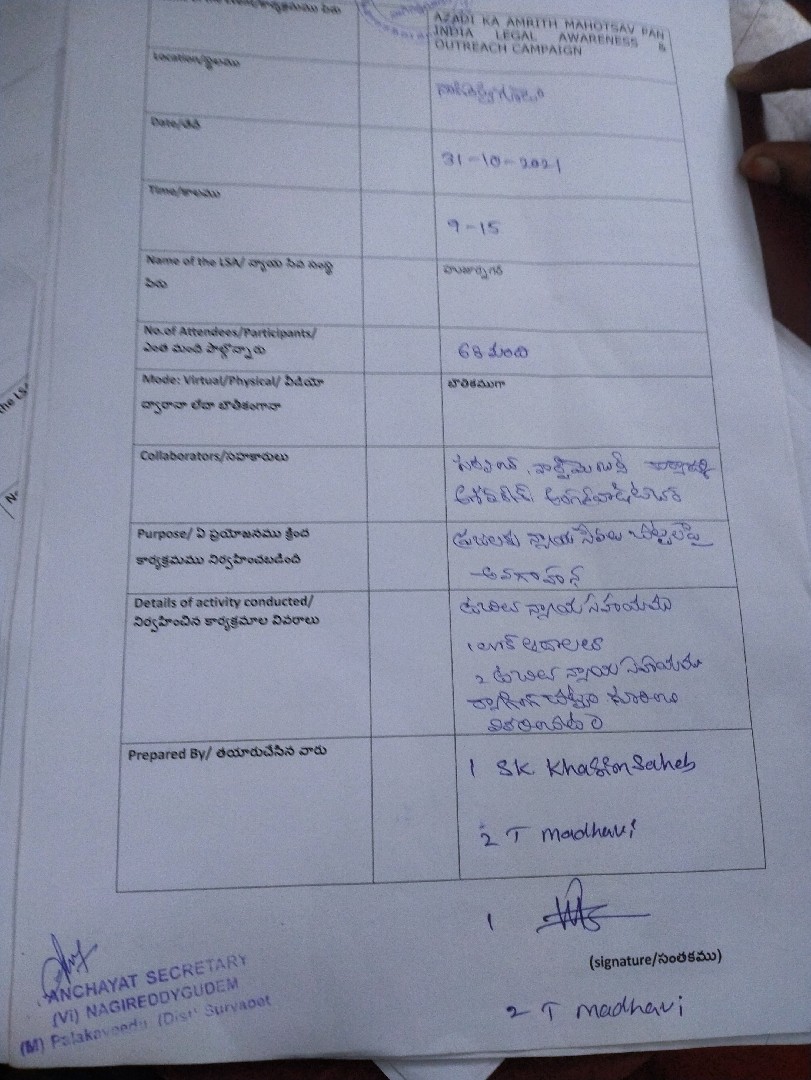 AZADI KA AMRITH MAHOTSAV PAN
INDIA LEGAL AWARENESS &
OUTREACH CAMPAIGN
Location/స్థలము
Date/తేది
31-10-2021
Time/కాలము
9-15
Name of the LSA/ న్యాయ సేవ సంస్థ
పేరు
హుజూర్నగర్
No.of Attendees/Participants/
ఎంత మంది పాల్గొన్నారు
68 మంది
Mode: Virtual/Physical/ వీడియో
ద్వారానా లేదా భౌతికంగానా
భౌతికముగా
Collaborators/సహకారులు
Purpose/ ఏ ప్రయోజనము క్రింద
కార్యక్రమము నిర్వహించబడింది
ప్రజలకు న్యాయ సేవలు చట్టలపై
అవగాహన
Details of activity conducted/
నిర్వహించిన కార్యక్రమాల వివరాలు
ప్రజలు న్యాయ సహాయము
1 లోక్ అదాలత్
2 న్యాయ సహాయము
ర్యాగింగ్ చట్టం గురించి
వివరించటం
Prepared By/ తయారుచేసిన వారు
1 SK. Khasim Saheb
2 T madhavi
1
(signature/సంతకము)
2 T madhavi
ANCHAYAT SECRETARY
(Vi) NAGIREDDYGUDEM
(M) Palakaveedu (Dist) Suryapet